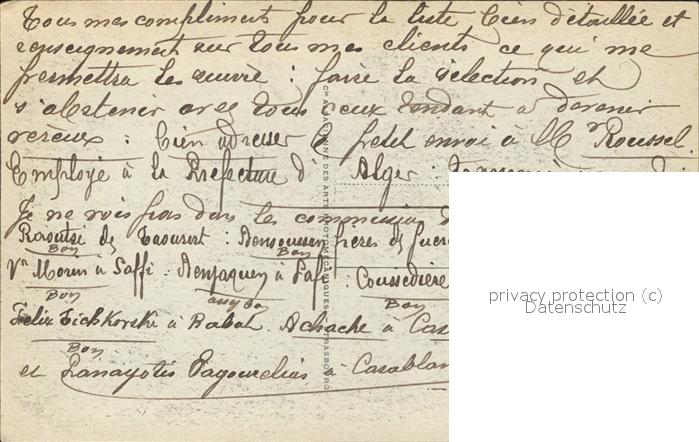 Tous mes compliments pour la liste bien détaillée et
renseignement sur tous mes clients ce qui me
permettra les suivre : faire la sélection et
s'abstenir avec tous ceux tendant à devenir
véreux : bien adresser le petit envoi à Mr Roussel.
Employé à la Préfecture d'Alger :
Je ne vois pas dans les commissions
Raoutsi de Taourirt : Bensoussan frères de Guer
Bon Bon
Vn Morin à Saffi : Benjaquen à Safi : Coussedière
Bon assez bon Bon
Felix Tichkorski à Rabat. Achache à Cas
Bon
et Panayotis Pagourelias à Casablan
Cie ALSACIENNE DES ARTS PHOTOMÉCANIQUES, STRASBOURG
privacy protection (c)
Datenschutz